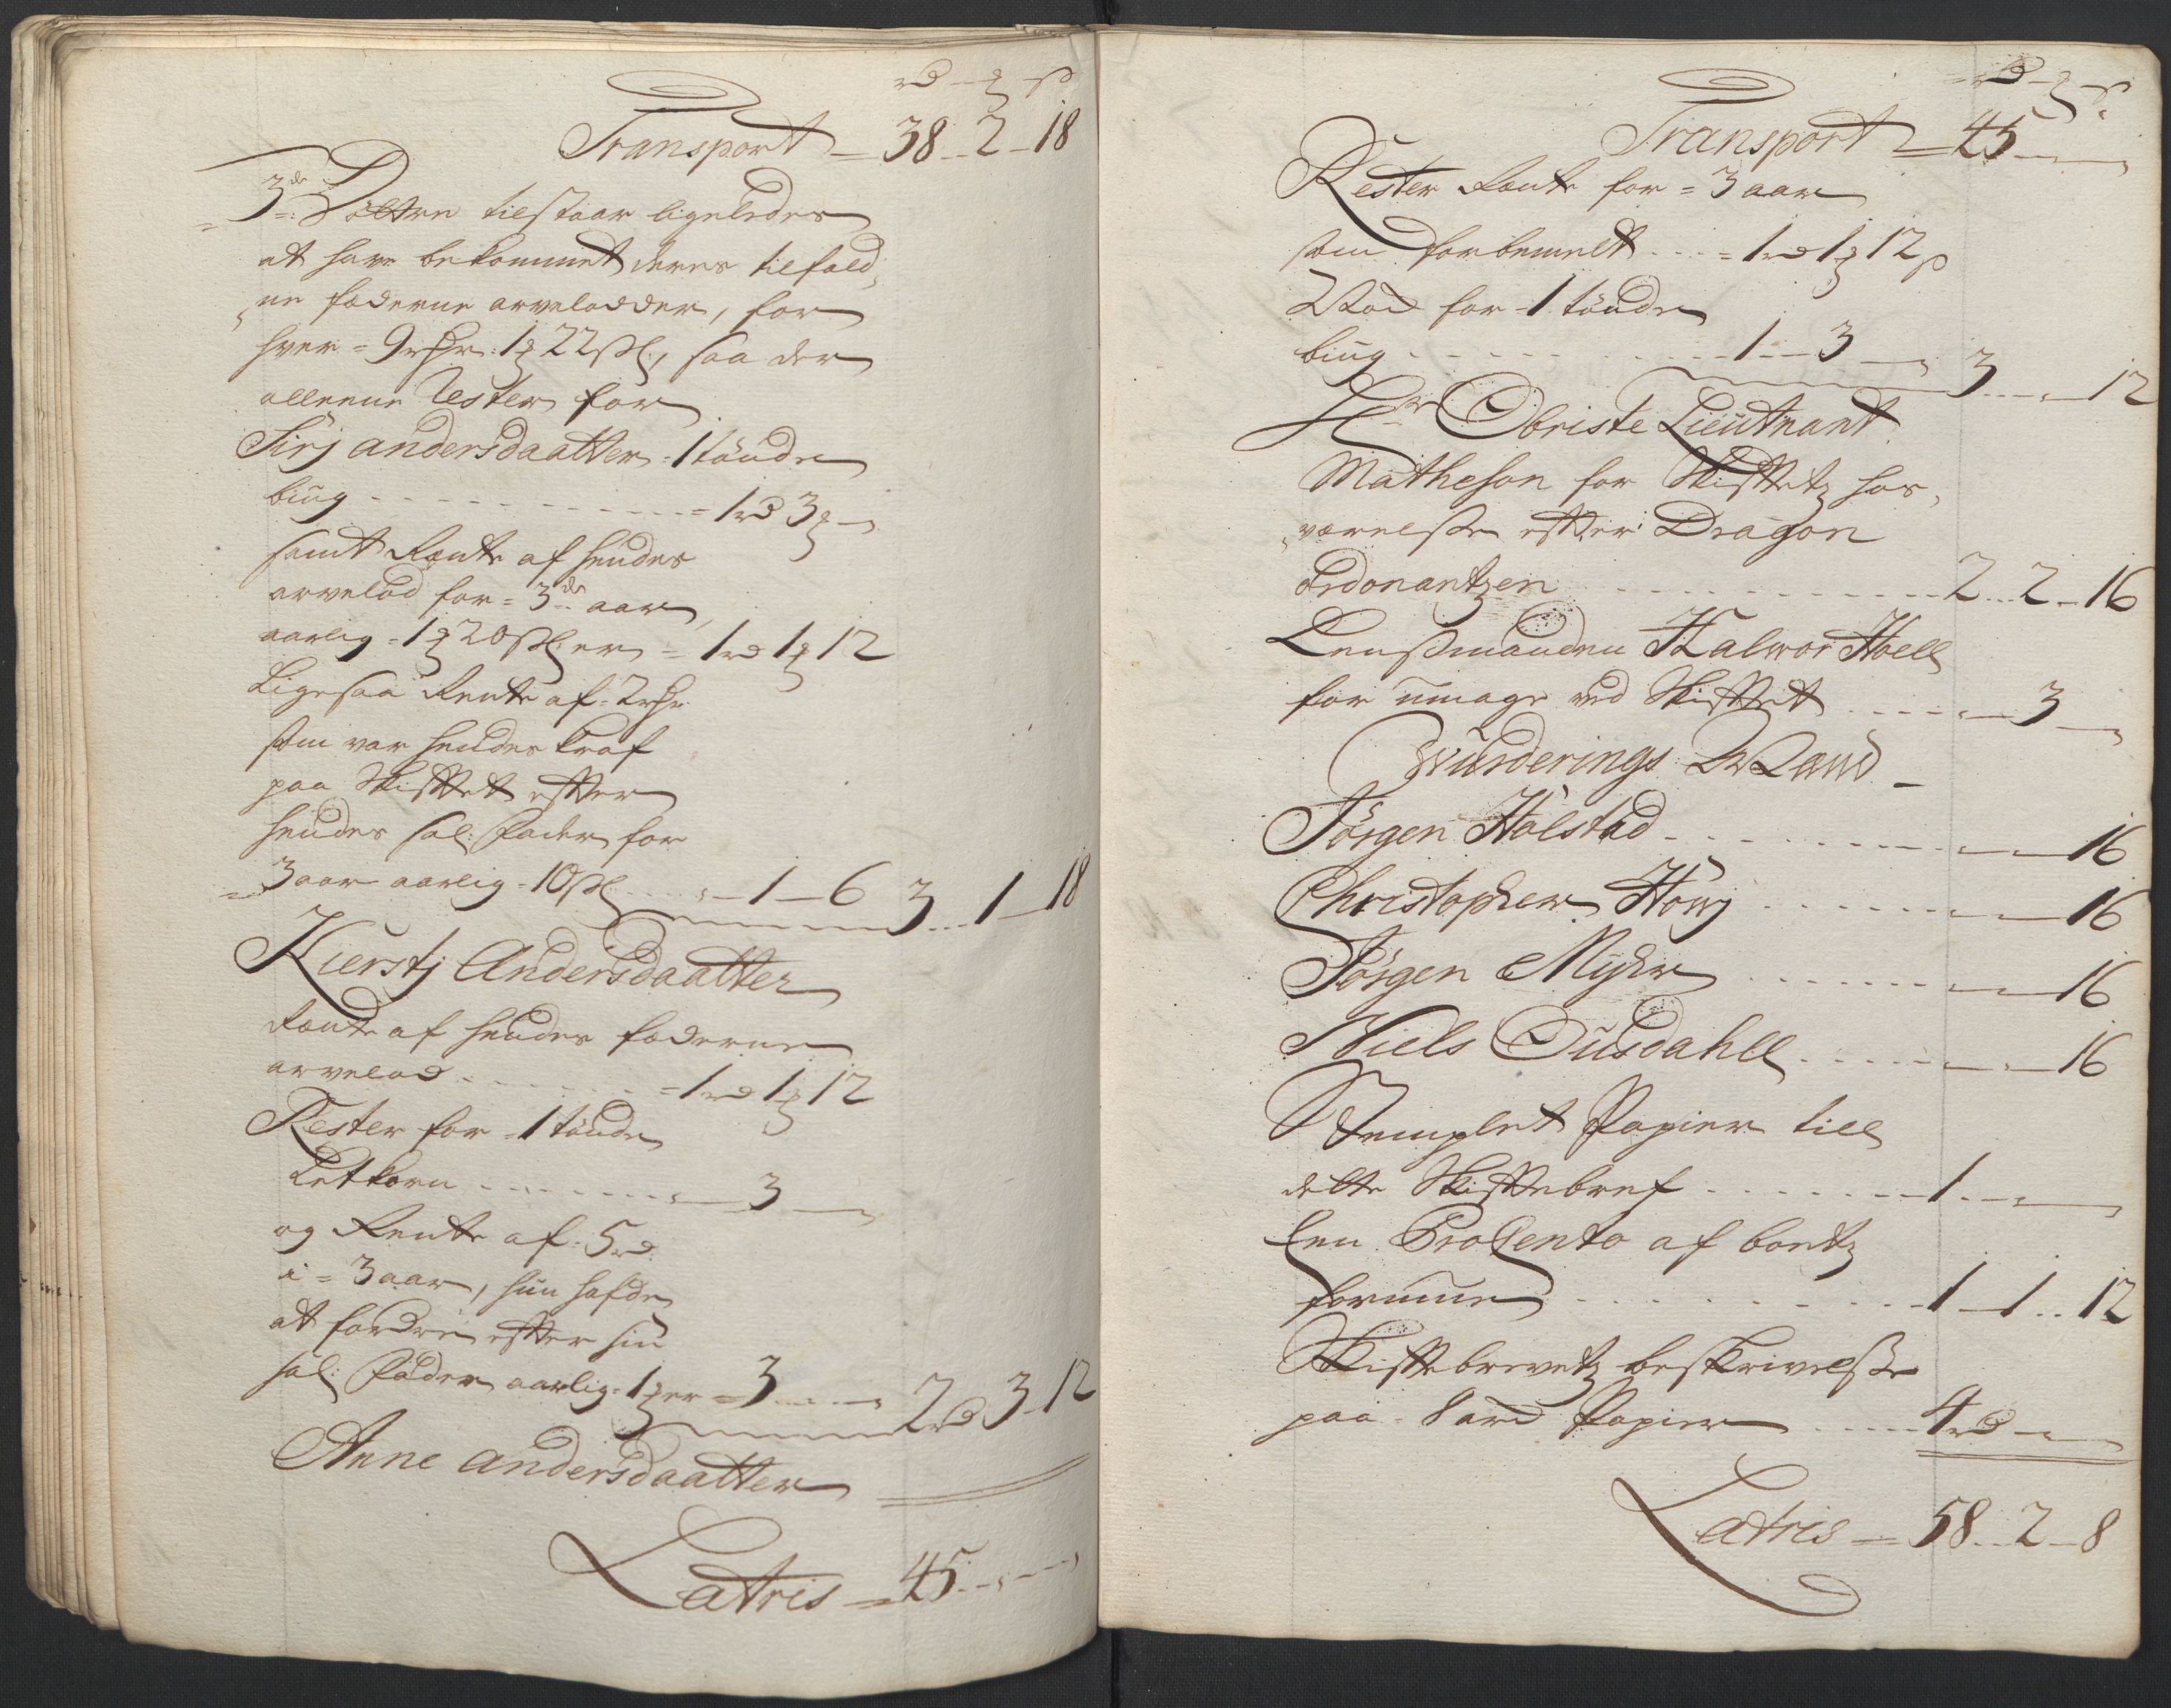 rd – ꝑ – s
Transport = 38 – 2 – 18
3de Døttre tilstaar ligeledes
at have bekommet deres tilfald
ne fæderne arvelodder, for
hver = 9 rdr: 1 ꝑ 22 sl:, saa der
alleene Rester for
Sirj andersdaatter = 1 tønde
biug = 1 rd 3 ꝑ –
samt Rente af hendes
arvelod for = 3de aar
aarlig = 1 ꝑ 20 sl er = 1 rd 1 ꝑ 12
Ligesaa Rente af = 2 rdr
som var hendes kraf
paa Skifftet effter
hendes sal: Fader for
3 aar aarlig = 10 sl – 1 – 6 3 – 1 – 18
Kierstj Andersdaatter
Rente af hendes fæderne
arvelod = 1 rd 1 ꝑ 12
Rester for = 1 tønde
Letkorn – 3 –
og Rente af = 5 rd
i = 3 aar, hun hafde
at fordre effter sin
sal: Fader aarlig = 1 ꝑ er = 3 – 2 rd 3 – 12
Anne andersdaatter
Latris = 45 – –
rd – ꝑ – s
Transport = 45 – –
Rester Rente for = 3 aar
som forbemelt = 1 rd 1 ꝑ 12 s
Item for = 1 tønde
biug 1 – 3 – 3 – – 12
Hr Obriste Lieutnant
Matheson for Skifftetz for,
værelße effter Dragon
Ordonantzen 2 – 2 – 16
Lensmanden Halwor Hoell
for umage ved Skifftet – 3 –
Wurderings Mænd
Jörgen Holstad – – 16
Christopher Höwj – – 16
Jörgen Myhr – – 16
Niels Dusdahll – – 16
Stemplet Papier till
dette Skifftebref 1 – –
Een ProCento af boetz
formue 1 – 1 – 12
Skifftebrevetz beskrivelße
paa = 8 ard Papier 4 rd – –
Latris = 58 – 2 – 8